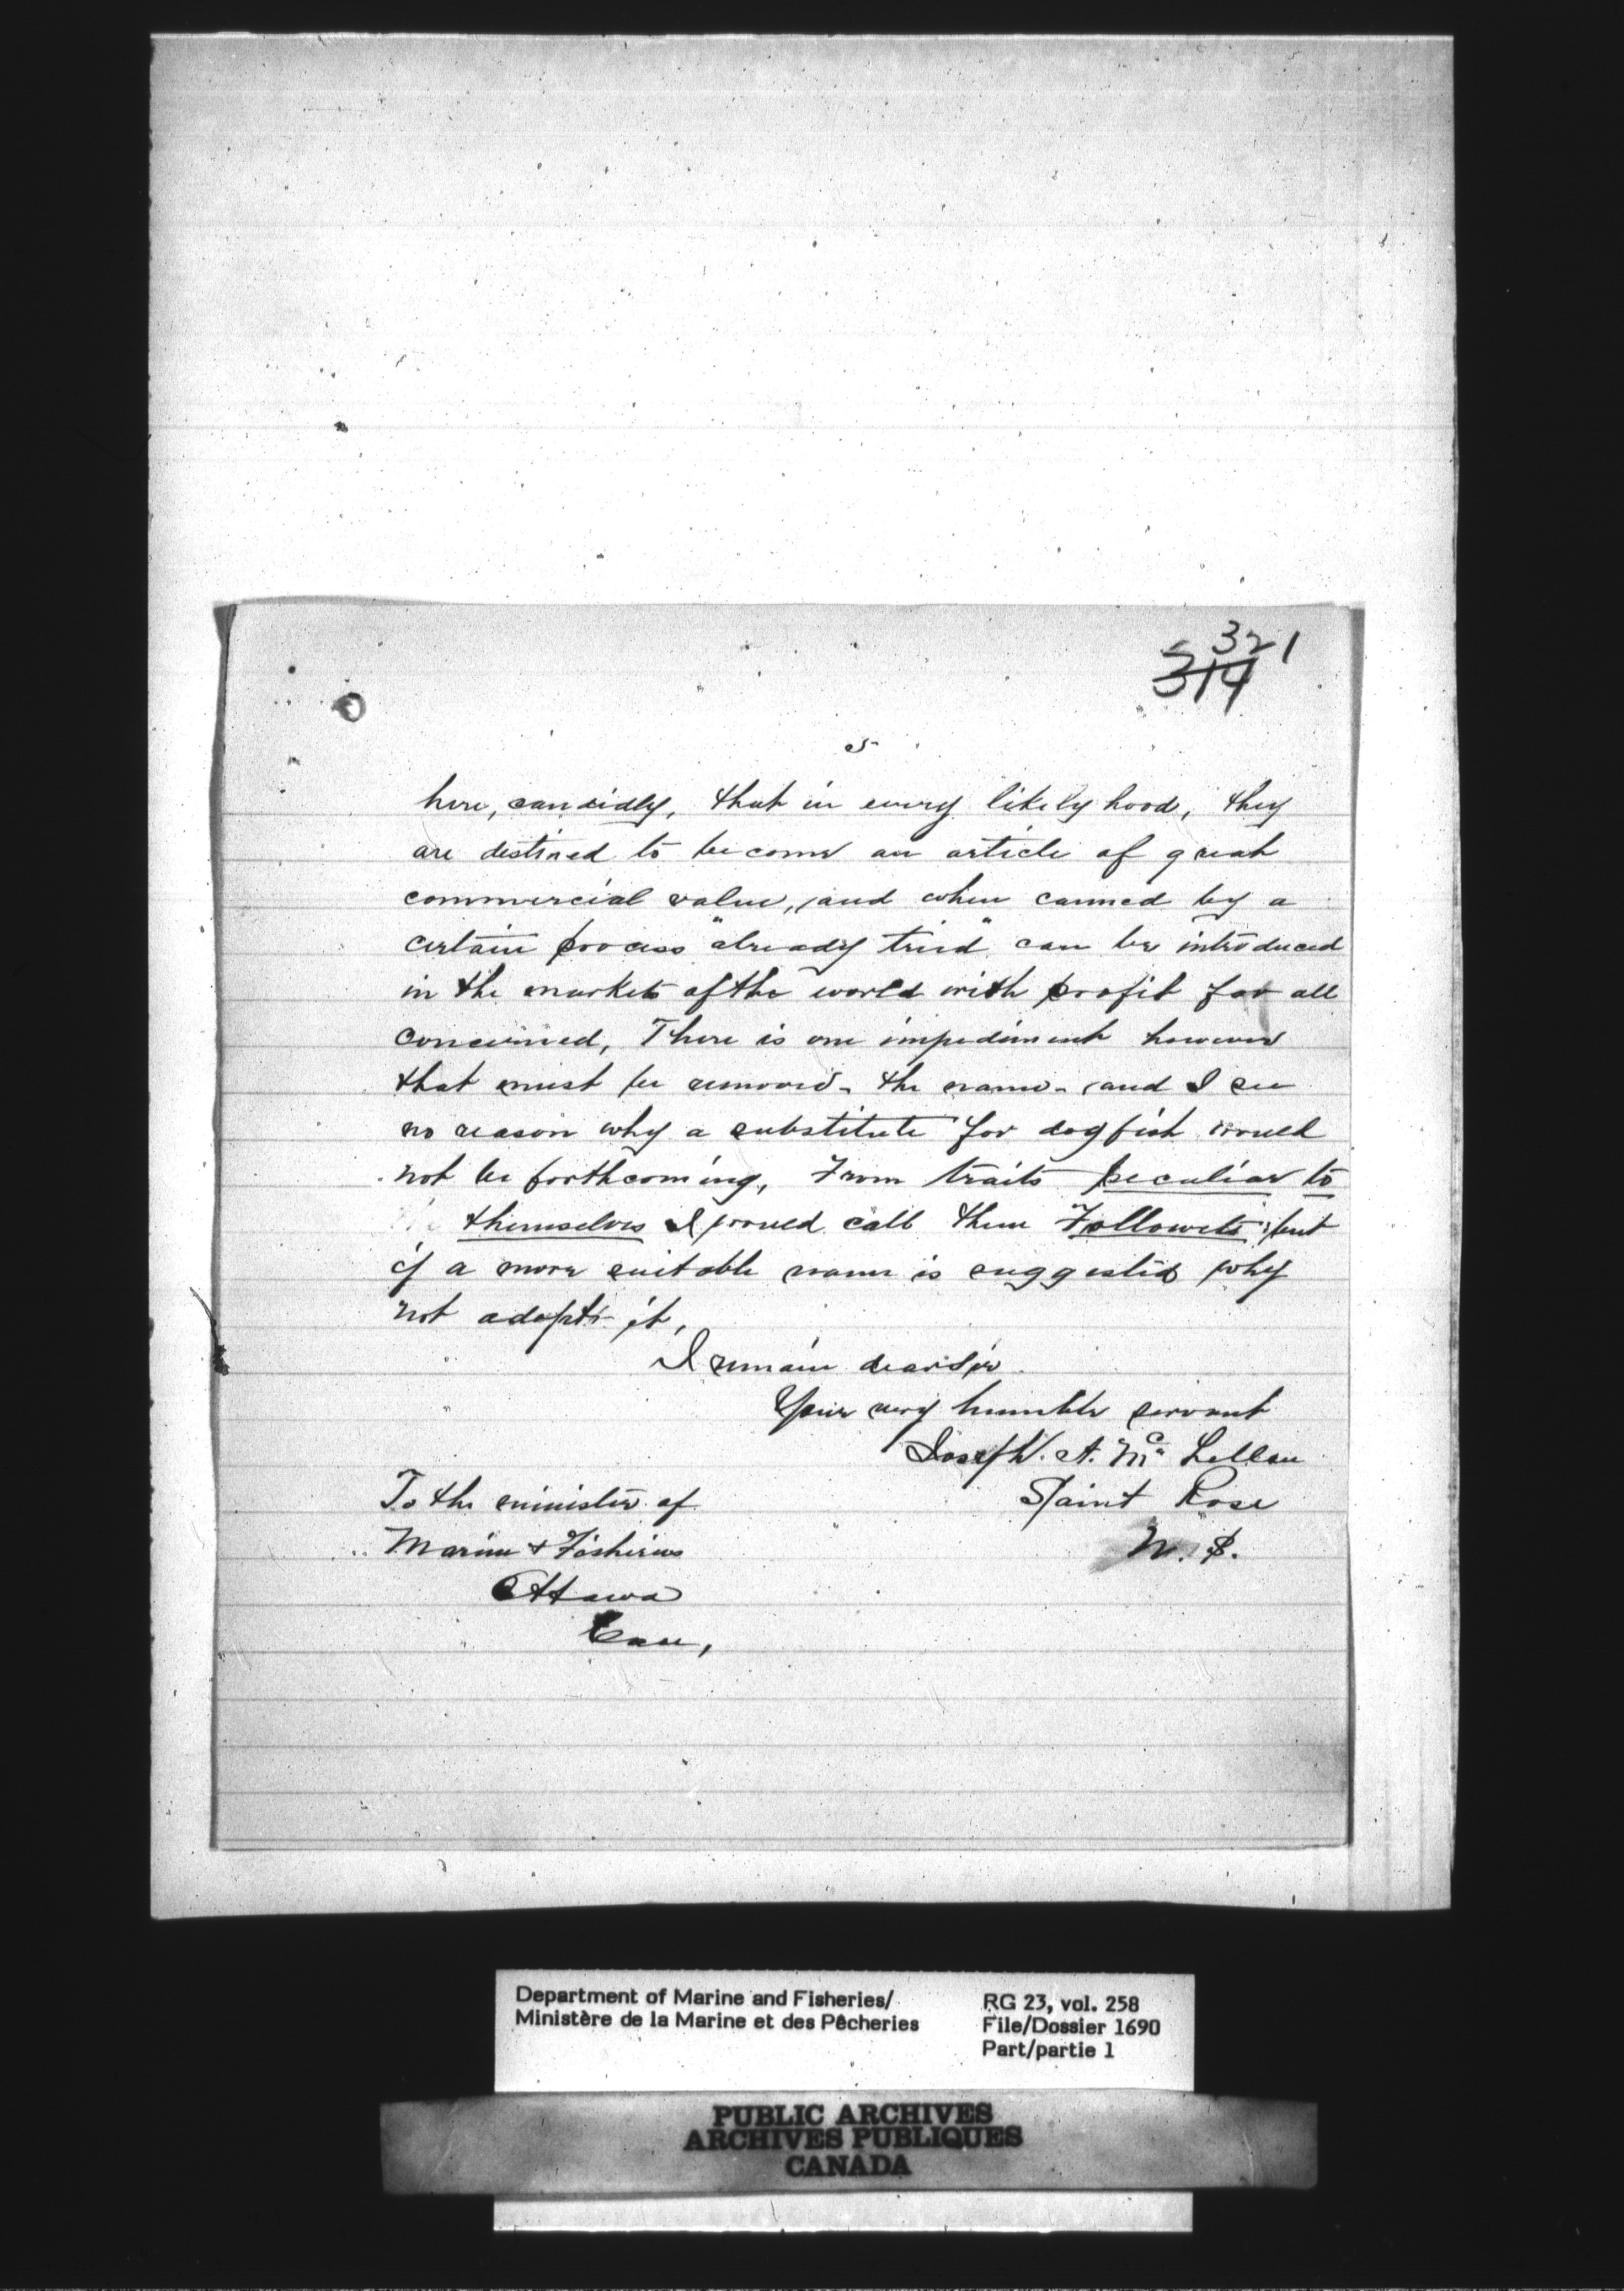 321
314
5
here, candidly, that in every likely hood, they
are destined to become an article of great
commercial value, and when canned by a
certain process "already tried" can be introduced
in the markets of the world with profit for all
concerned, There is one impediment however
that must be removed - the name - and I see
no reason why a substitute for dogfish would
not be forthcoming, From traits peculiar to
themselves I would call them Followets but
if a more suitable name is suggested why
not adopt it,
I remain dear Sir
Your very humble servant
Joseph. A. Mc Lellan
Saint Rose
N. S.
To the minister of
Marine & Fisheries
Ottawa
Can,
Department of Marine and Fisheries/
Ministère de la Marine et des Pêcheries
RG 23, vol. 258
File/Dossier 1690
Part/partie 1
PUBLIC ARCHIVES
ARCHIVES PUBLIQUES
CANADA